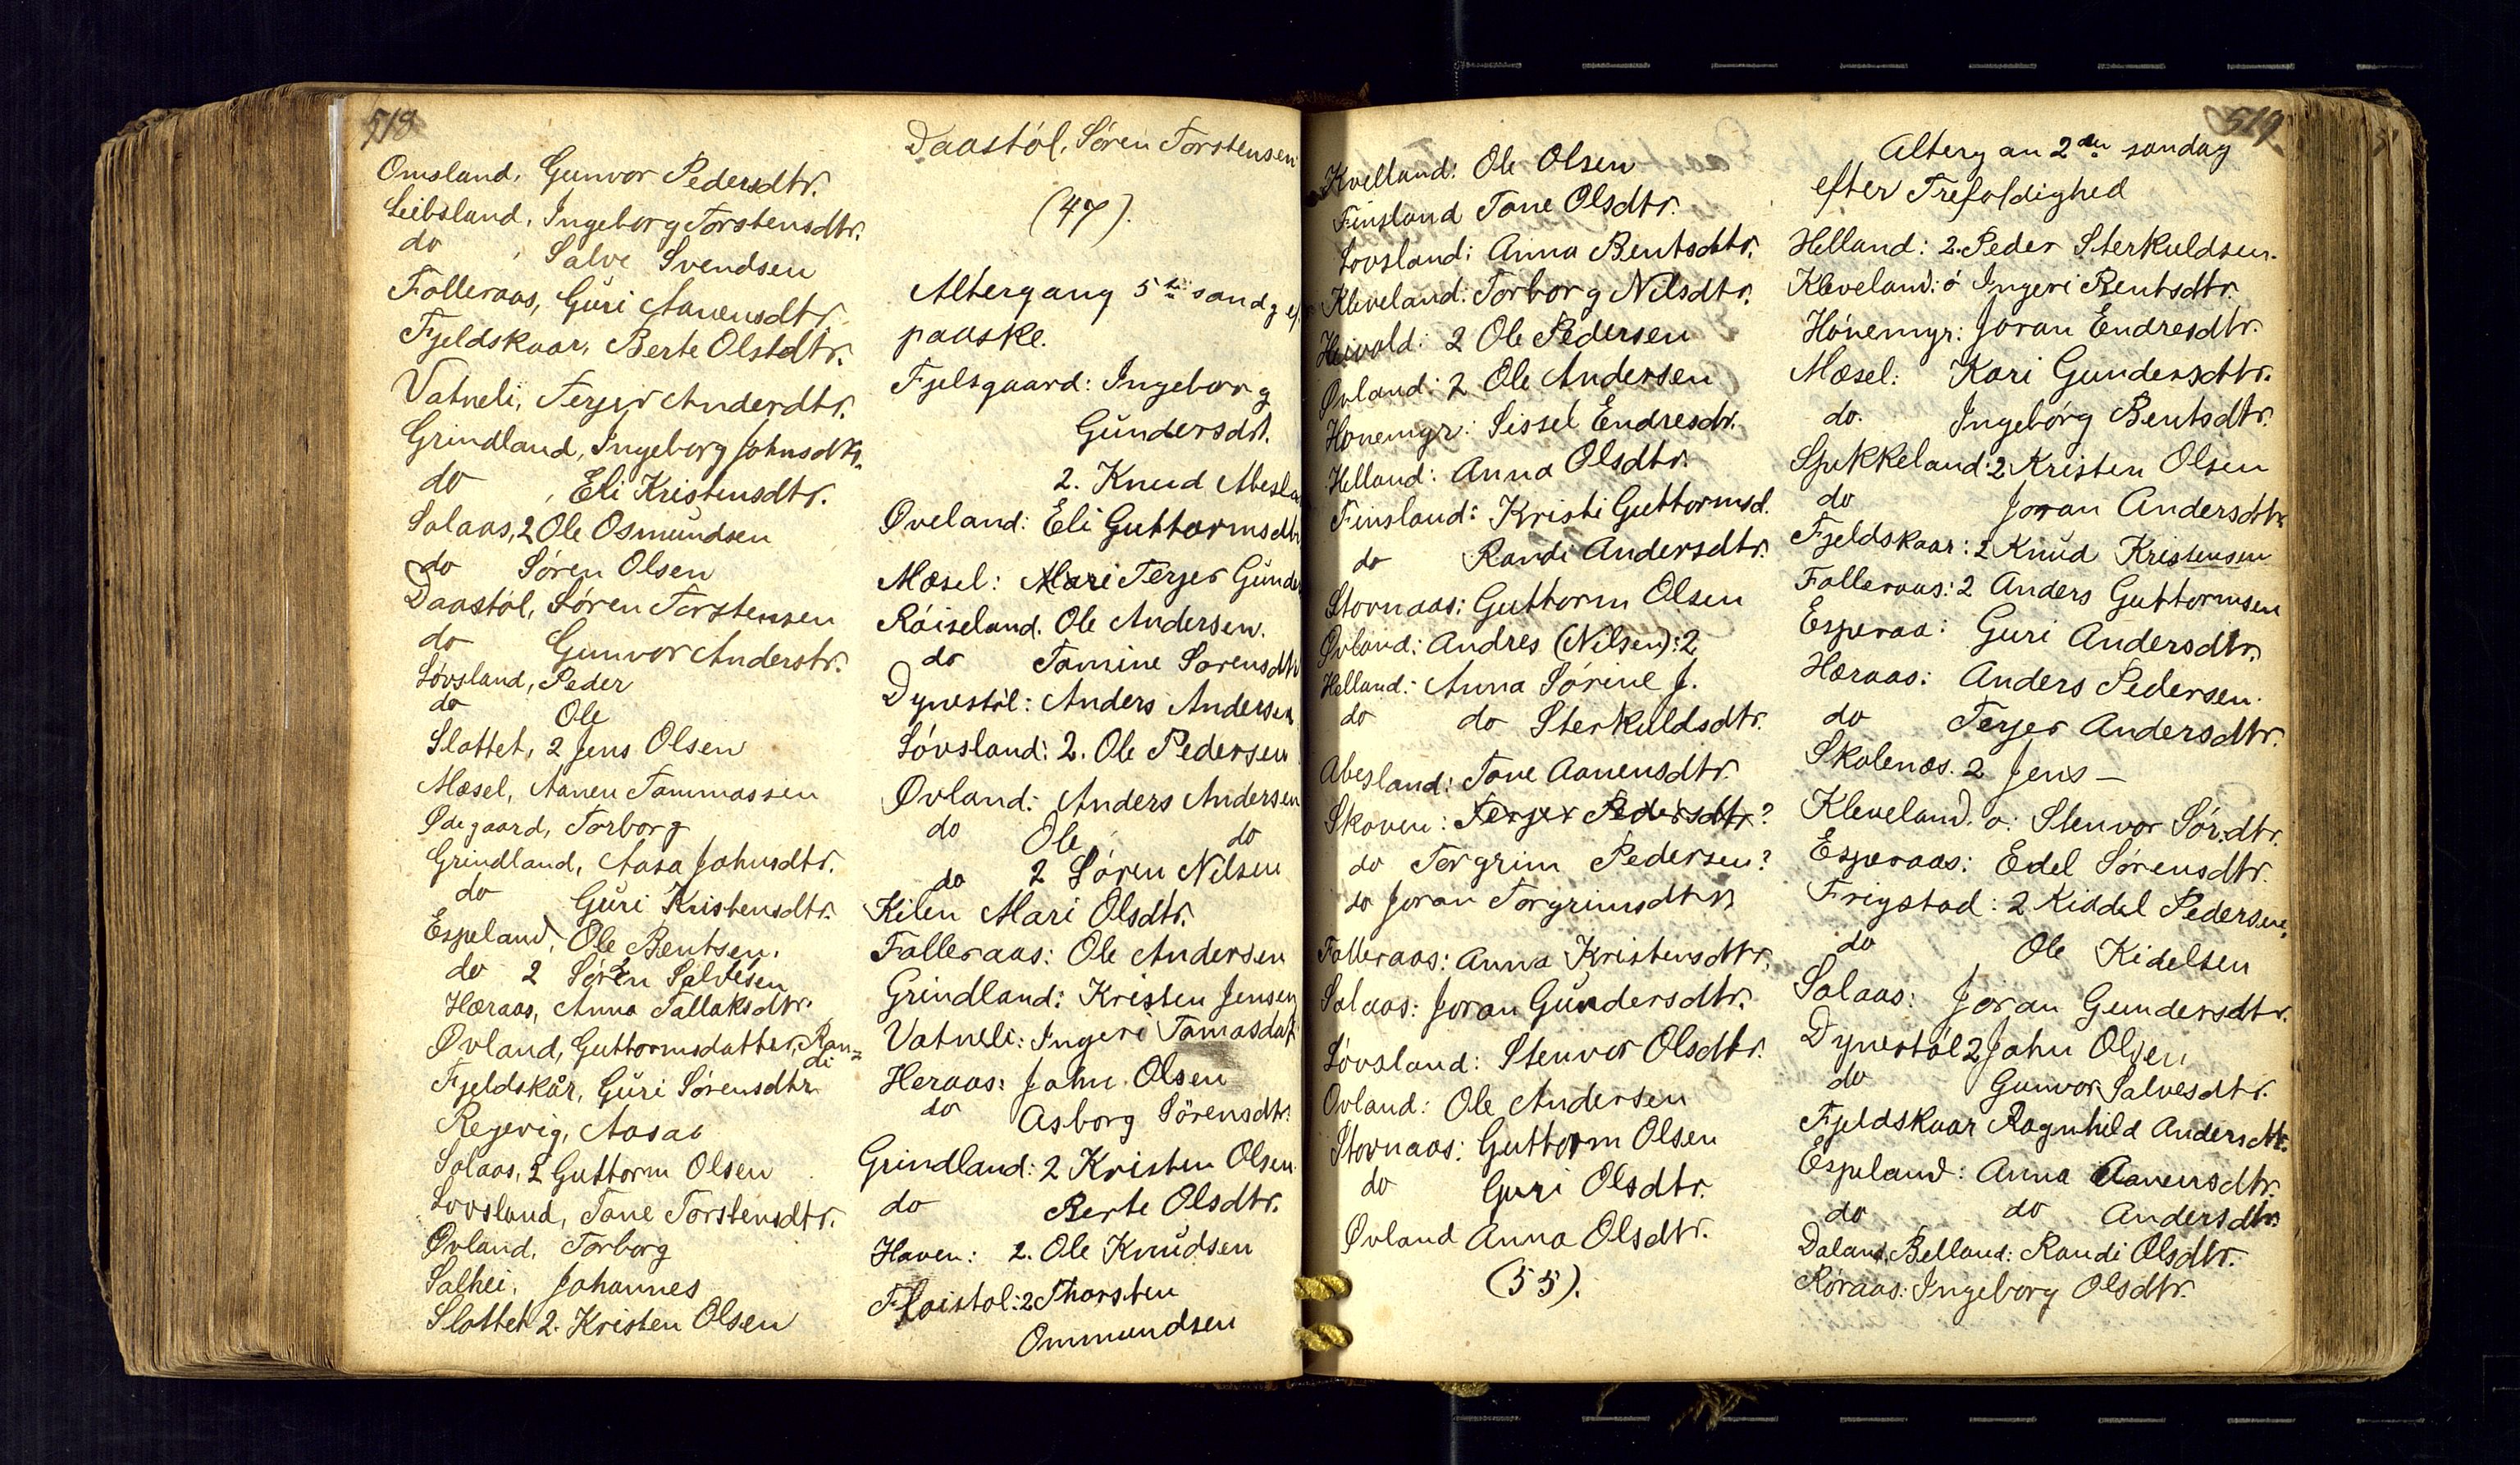 518
Omsland, Gunvor Pedersdtr.
Leibsland, Ingeborg Torstensdtr.
do , Salve Svendsen
Folleraas, Guri Aanensdtr.
Fjeldskaar, Berte Olstdtr.
Vatneli, Terjer Anderdtr.
Grindland, Ingeborg Johnsdtr.
do , Eli Kristensdtr.
Solaas, 2 Ole Osmundsen
do Søren Olsen
Daastøl, Søren Torstensen
do Gunvor Anderstr.
Løvsland, Peder
do Ole
Slottet, 2 Jens Olsen
Mosel, Aanen Tammassen
Ødegaard, Torborg
Grindland, Aasa Johnsdtr.
do Guri Kristensdtr.
Espeland, Ole Bentsen.
do 2 Søren Salvesen
Høraas, Anna Tallaksdtr.
Øvland, Guttormsdatter, Ran=
di
Fjeldskår, Guri Sørensdtr
Rejevig, Aasa
Solaas, 2 Guttorm Olsen
Lovsland, Tone Torstensdtr.
Øvland, Torborg
Salhei, Johannes
Slottet 2. Kristen Olsen
Daastøl, Søren Torstensen
(47).
Altergang 5te sondg ef
paaske.
Fjelsgaard: Ingeborg
Gundersdt.
2. Knud Abesla
Øveland: Eli Guttormsdtr
Mosel: Mari Terjer Gunde
Røiseland. Ole Andersen.
do Tomine Sorensdtr
Dynestøl: Anders Andersen
Løvsland: 2. Ole Pedersen
Øvland: Anders Andersen
do Ole do
do 2 Søren Nilsen
Kilen Mari Olsdtr.
Folleraas: Ole Andersen
Grindland: Kristen Jensen
Vatneli: Ingeri Tomasdat
Heraas: John Olsen
do Asborg Sörensdtr.
Grindland: 2 Kristen Olsen
do Berte Olsdtr.
Haven: 2. Ole Knudsen
Fløistol: 2 Thorsten
Ommundsen
519
Kvelland: Ole Olsen
Finsland Tone Olsdtr.
Lovsland: Anna Bentsdtr.
Kleveland: Torborg Nilsdtr.
Heivold: 2 Ole Pedersen
Øvland: 2 Ole Andersen
Honemyr: Sissel Endresdr.
Helland: Anna Olsdtr.
Finsland: Kristi Guttormsd.
do Randi Andersdtr.
Stovnaas: Guttorm Olsen
Øvland: Andres (Nilsen): 2
Helland: Anna Sørine J.
do do Sterkuldsdtr.
Abesland: Tone Aanensdtr.
Skoven: Terjer Pedersdtr?
do Torgrim Pedersen?
do Joran Torgrimsdtr
Folleraas: Anna Kristensdtr.
Solaas: Joran Gundersdtr.
Løvsland: Stenvor Olsdtr.
Ovland: Ole Andersen
Stovnaas: Guttorm Olsen
do Guri Olsdtr.
Øvland Anna Olsdtr.
(55).
Alterg an 2den sondag
efter Trefoldighed
Helland: 2. Peder Sterkuldsen.
Kleveland: ó Ingeri Bentsdtr.
Hónemyr: Joran Endresdtr.
Mosel: Kari Gundersdtr.
do. Ingeborg Bentsdtr.
Spikkeland: 2 Kristen Olsen
do Joran Andersdtr
Fjeldskaar: 2 Knud Kristensen
Folleraas: 2 Anders Guttormsen
Esperaa: Guri Andersdtr.
Høraas: Anders Pedersen.
do Terjer Andersdtr.
Skolenæs. 2 Jens —
Kleveland. o: Stenvor Sör.dtr.
Esperaas: Edel Sørensdtr.
Frigstad: 2 Kiddel Pedersen,
do Ole Kidelsen
Solaas: Joran Gundersdtr.
Dynestøl 2 John Olsen
do Gunvor Salvesdtr.
Fjeldskaar Ragnhild Andersdtr.
Espeland: Anna Aanensdtr.
do do Andersdtr
Daland, Belland: Randi Olsdtr.
Röraas: Ingeborg Olsdtr.